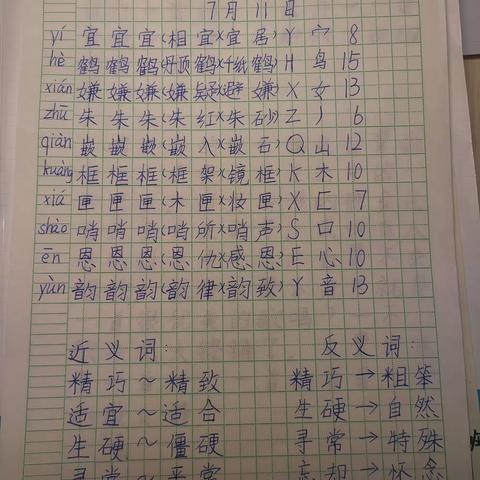 7月11日
yí 宜 宜 宜(相宜)(宜居) Y 宀 8
hè 鹤 鹤 鹤(丹顶鹤)(千纸鹤) H 鸟 15
xián 嫌 嫌 嫌(嫌疑)(避嫌) X 女 13
zhū 朱 朱 朱(朱红)(朱砂) Z 丿 6
qiàn 嵌 嵌 嵌(嵌入)(嵌石) Q 山 12
kuàng 框 框 框(框架)(镜框) K 木 10
xiá 匣 匣 匣(木匣)(妆匣) X 匚 7
shào 哨 哨 哨(哨所)(哨声) S 口 10
ēn 恩 恩 恩(恩仇)(感恩) E 心 10
yùn 韵 韵 韵(韵律)(韵致) Y 音 13
近义词: 反义词:
精巧~精致 精巧→粗笨
适宜~适合 生硬→自然
生硬~僵硬 寻常→特殊
寻常~平常 忘却→怀念